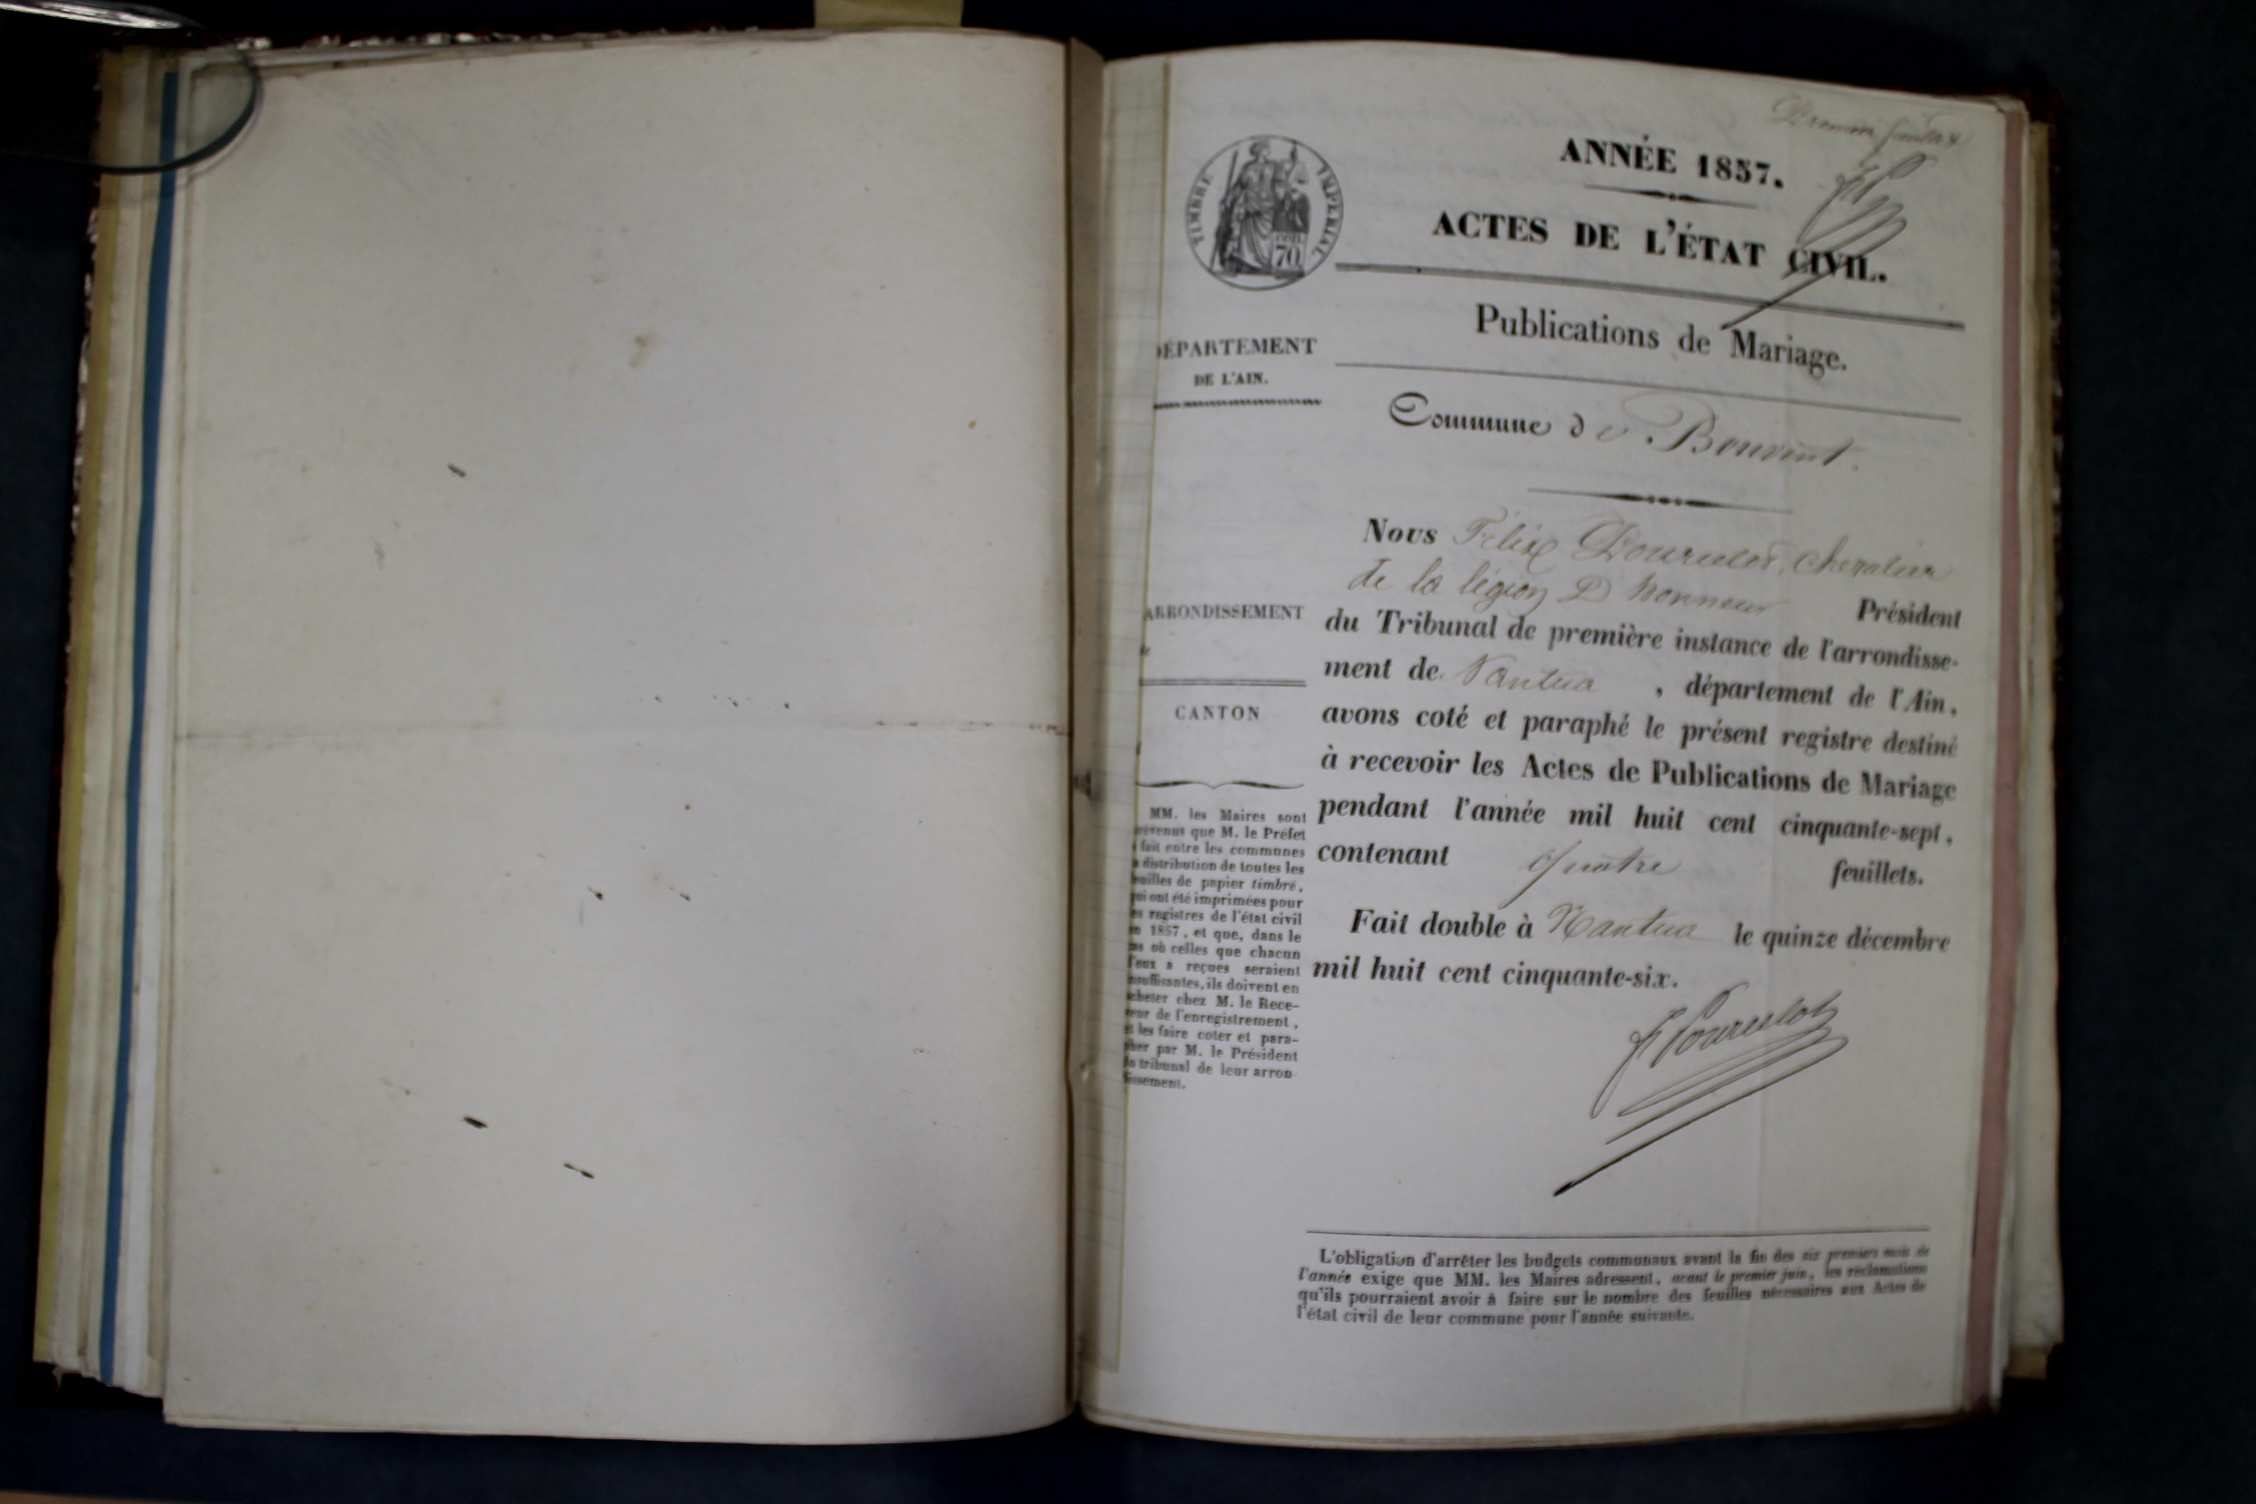 Premier feuillet
ANNÉE 1857.
TIMBRE IMPÉRIAL
70
ACTES DE L'ÉTAT CIVIL.
Publications de Mariage.
DÉPARTEMENT
DE L'AIN.
Commune de
Nous Félix Pourcelot, chevalier
de la légion D honneur Président
du Tribunal de première instance de l'arrondisse-
ment de Nantua, département de l'Ain,
avons coté et paraphé le présent registre destiné
à recevoir les Actes de Publications de Mariage
pendant l'année mil huit cent cinquante-sept,
contenant quatre feuillets.
Fait double à Nantua le quinze décembre
mil huit cent cinquante-six.
ARRONDISSEMENT
de
CANTON
MM. les Maires sont
prévenus que M. le Préfet
a fait entre les communes
la distribution de toutes les
feuilles de papier timbré,
qui ont été imprimées pour
les registres de l'état civil
en 1857, et que, dans le
cas où celles que chacun
d'eux a reçues seraient
insuffisantes, ils doivent en
acheter chez M. le Rece-
veur de l'enregistrement,
et les faire coter et para-
pher par M. le Président
du tribunal de leur arron-
dissement.
L'obligation d'arrêter les budgets communaux avant la fin des six premiers mois de
l'année exige que MM. les Maires adressent, avant le premier juin, les réclamations
qu'ils pourraient avoir à faire sur le nombre des feuilles nécessaires aux Actes de
l'état civil de leur commune pour l'année suivante.